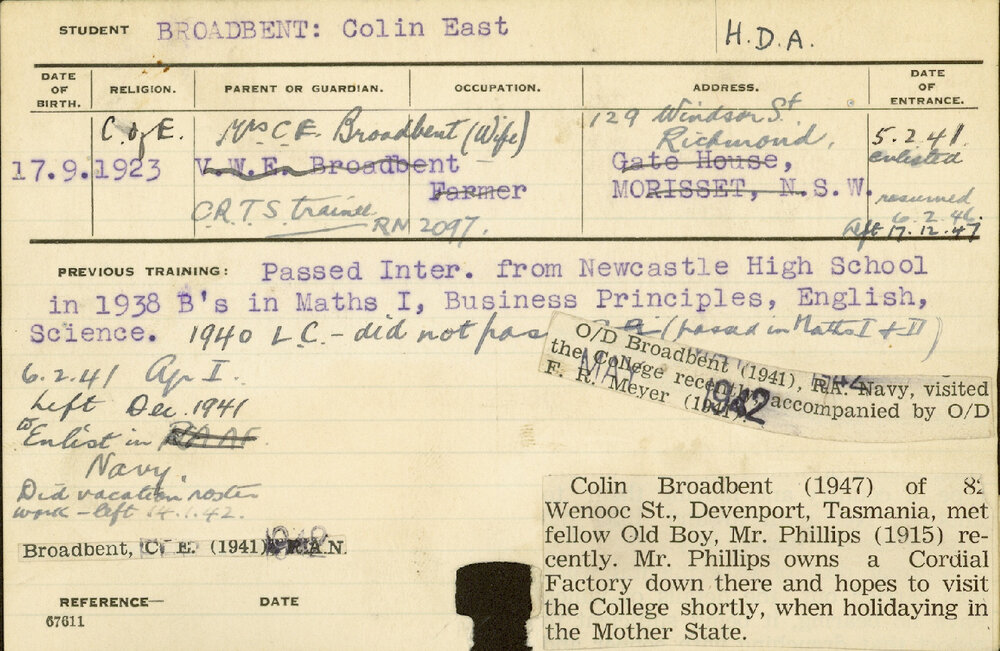 STUDENT BROADBENT: Colin East H.D.A.
DATE OF BIRTH. RELIGION. PARENT OR GUARDIAN. OCCUPATION. ADDRESS. DATE OF ENTRANCE.
C. of E. Mrs C E Broadbent (Wife) 129 Windsor St
Richmond, 5.2.41
17.9.1923 V.W.E. Broadbent Gate House, enlisted
Farmer MORISSET, N.S.W.
C.R.T.S. trainee resumed
RM 2097. 6.2.46
left 17.12.47
PREVIOUS TRAINING: Passed Inter. from Newcastle High School
in 1938 B's in Maths I, Business Principles, English,
Science. 1940 L.C. - did not pas (passed in Maths I & II)
6.2.41 Ag I.
Left Dec. 1941
to Enlist in RAAF
Navy.
Did vacation roster
work - left 14.1.42.
Broadbent, C. E. (1941) R.A.N.
O/D Broadbent (1941), R.A. Navy, visited
the College recently, accompanied by O/D
F. R. Meyer (1941).
MAY 1942
Colin Broadbent (1947) of 82
Wenooc St., Devenport, Tasmania, met
fellow Old Boy, Mr. Phillips (1915) re-
cently. Mr. Phillips owns a Cordial
Factory down there and hopes to visit
the College shortly, when holidaying in
the Mother State.
REFERENCE— DATE
67611